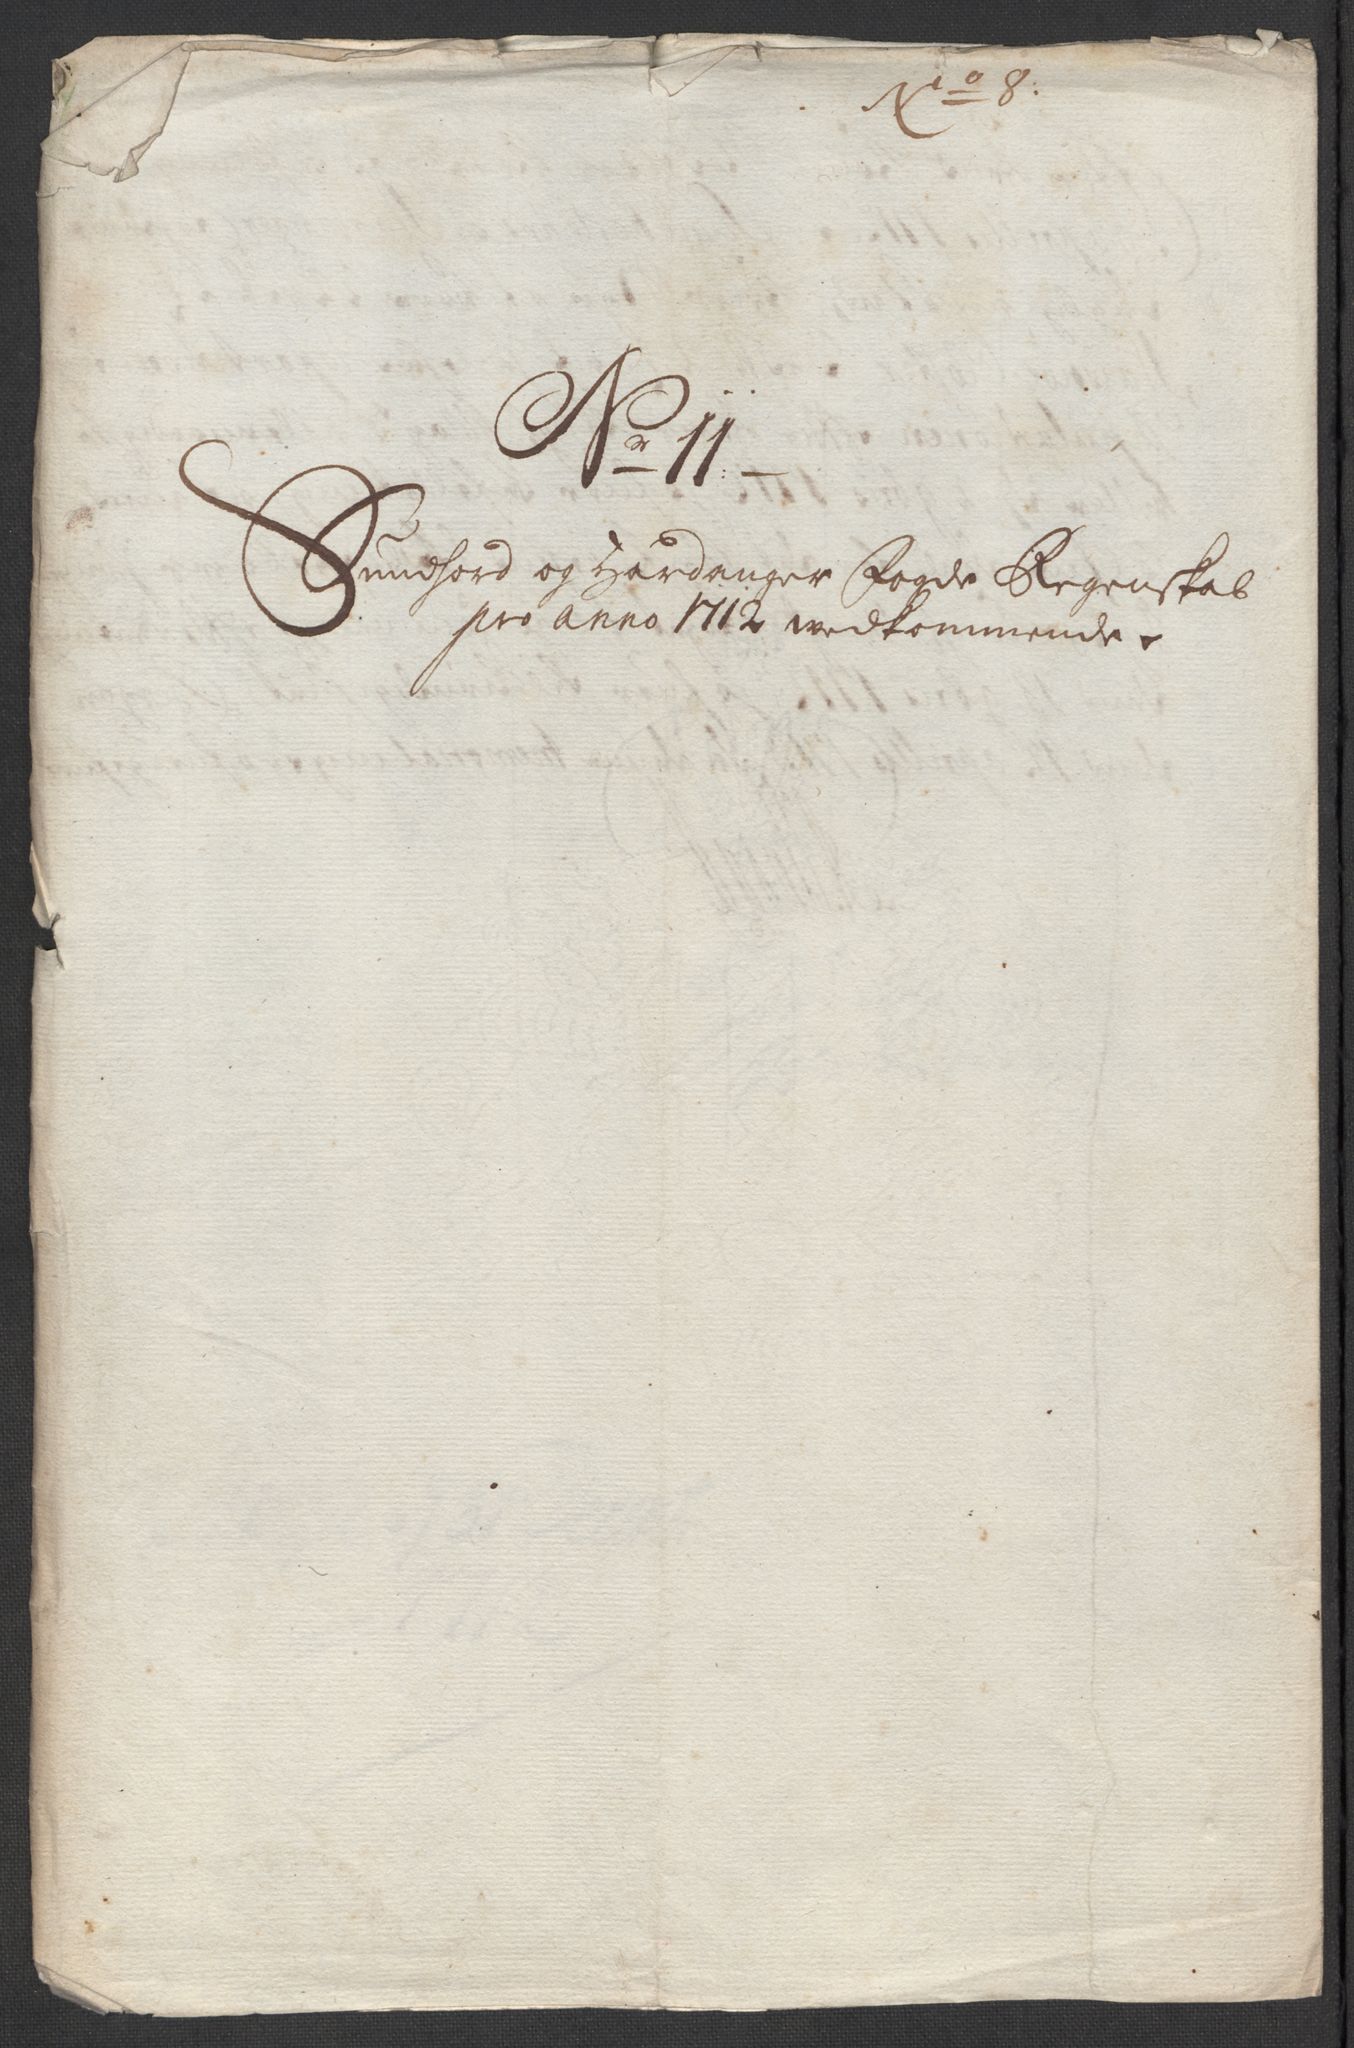 No 8:
Nr 11:
Sundhord og Hardanger Fogde Regenskab
pro anno 1712 vedkommende.